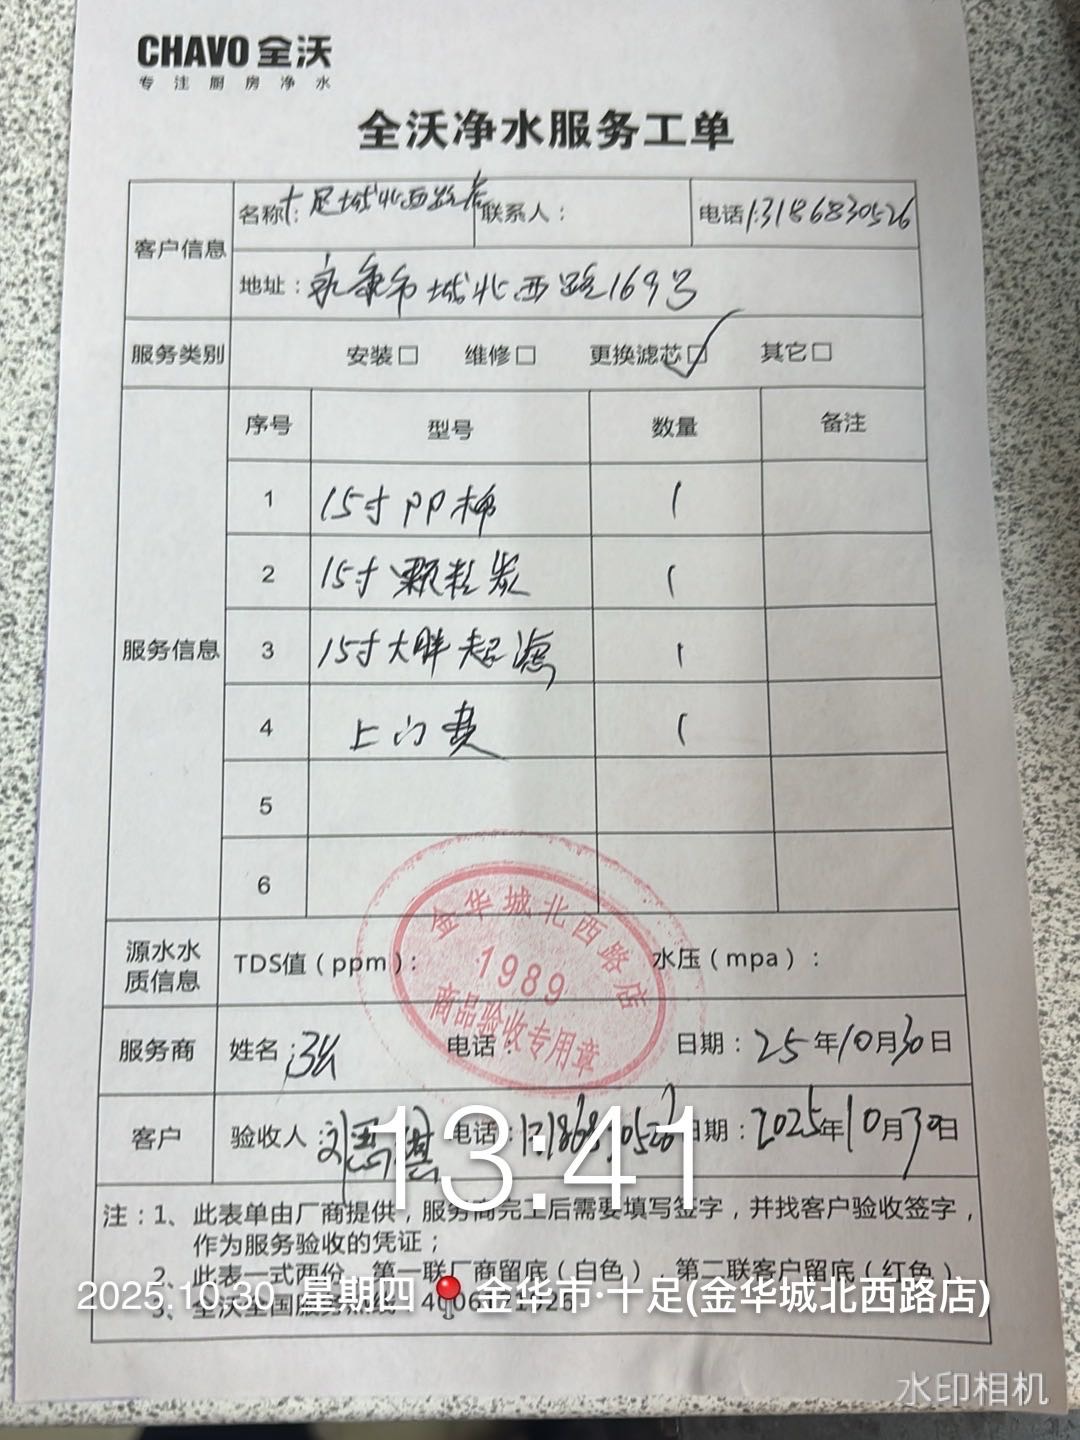 CHAVO 全沃
专注厨房净水
全沃净水服务工单
客户信息
名称：十足城北西路店 联系人： 电话13186830526
地址：永康市城北西路169号
服务类别 安装□ 维修□ 更换滤芯□✓ 其它□
服务信息
序号 型号 数量 备注
1 15寸PP棉 1
2 15寸颗粒炭 1
3 15寸大胖超滤 1
4 上门费 1
5
6
金华城北西路店
1989
商品验收专用章
源水水质信息 TDS值（ppm）： 水压（mpa）：
服务商 姓名： 电话： 日期：25年10月30日
客户 验收人： 电话：13186830526 日期：2025年10月30日
13:41
注：1、此表单由厂商提供，服务商完工后需要填写签字，并找客户验收签字，
作为服务验收的凭证；
2、此表一式两份，第一联厂商留底（白色），第二联客户留底（红色）
3、全沃全国服务热线
2025.10.30 星期四 金华市·十足(金华城北西路店)
水印相机